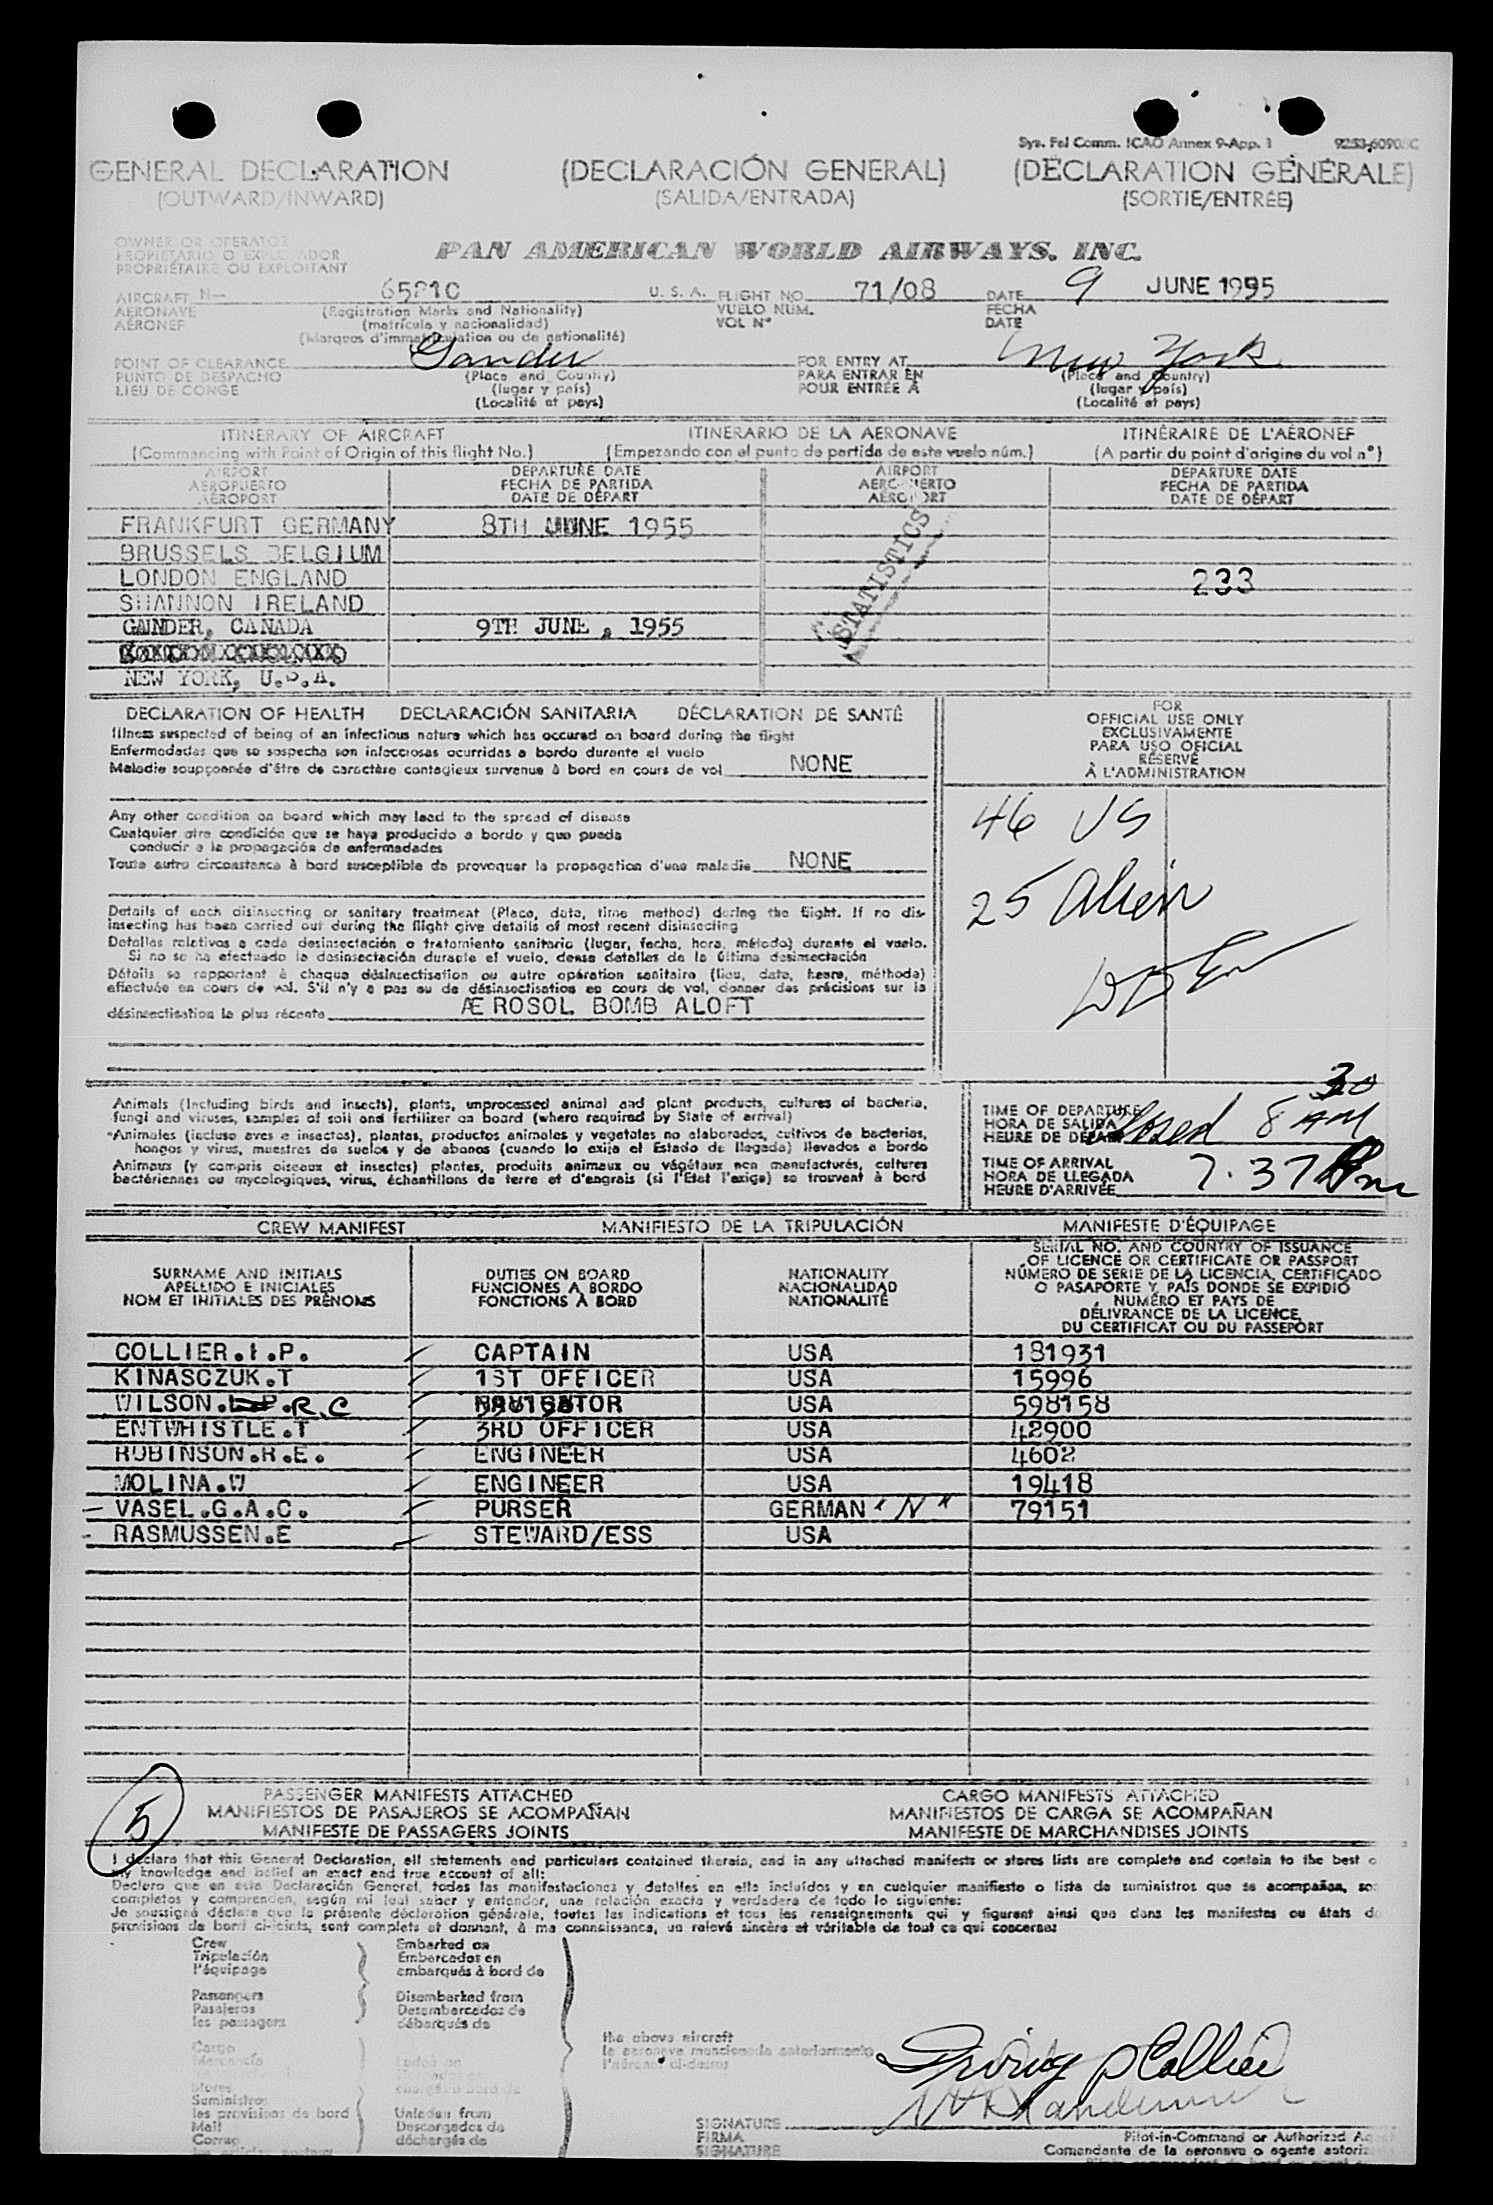 Sys. Fal Comm. ICAO Annex 9-App. 1
GENERAL DECLARATION (DECLARACIÓN GENERAL) (DÉCLARATION GÉNÉRALE)
(OUTWARD/INWARD) (SALIDA/ENTRADA) (SORTIE/ENTRÉE)
OWNER OR OPERATOR
PROPIETARIO O EXPLOTADOR
PROPRIÉTAIRE OU EXPLOITANT
PAN AMERICAN WORLD AIRWAYS, INC.
AIRCRAFT N— U. S. A. FLIGHT NO. 71/08 DATE 9 JUNE 1955
AERONAVE (Registration Marks and Nationality) VUELO NUM. FECHA
AÉRONEF (matrícula y nacionalidad) VOL N° DATE
(Marques d'immatriculation ou de nationalité)
POINT OF CLEARANCE Gander FOR ENTRY AT New York
PUNTO DE DESPACHO (Place and Country) PARA ENTRAR EN (Place and Country)
LIEU DE CONGE (lugar y país) POUR ENTRÉE À (lugar y país)
(Localité et pays) (Localité et pays)
ITINERARY OF AIRCRAFT ITINERARIO DE LA AERONAVE ITINÉRAIRE DE L'AÉRONEF
(Commencing with Point of Origin of this flight No.) (Empezando con el punto de partida de este vuelo núm.) (A partir du point d'origine du vol n°)
AIRPORT DEPARTURE DATE AIRPORT DEPARTURE DATE
AEROPUERTO FECHA DE PARTIDA AEROPUERTO FECHA DE PARTIDA
AÉROPORT DATE DE DÉPART AÉROPORT DATE DE DÉPART
FRANKFURT GERMANY 8TH JUNE 1955
BRUSSELS BELGIUM
LONDON ENGLAND 233
SHANNON IRELAND
GANDER, CANADA 9TH JUNE, 1955
STATISTICS
NEW YORK, U.S.A.
DECLARATION OF HEALTH DECLARACIÓN SANITARIA DÉCLARATION DE SANTÉ
Illness suspected of being of an infectious nature which has occured on board during the flight
Enfermedades que se sospecha son infecciosas ocurridas a bordo durante el vuelo
Maladie soupçonnée d'être de caractère contagieux survenue à bord en cours de vol NONE
Any other condition on board which may lead to the spread of disease
Cualquier otra condición que se haya producido a bordo y que pueda
conducir a la propagación de enfermedades
Toute autre circonstance à bord susceptible de provoquer la propagation d'une maladie NONE
Details of each disinsecting or sanitary treatment (Place, date, time method) during the flight. If no dis-
insecting has been carried out during the flight give details of most recent disinsecting
Detalles relativos a cada desinsectación o tratamiento sanitario (lugar, fecha, hora, método) durante el vuelo.
Si no se ha efectuado la desinsectación durante el vuelo, dense detalles de la última desinsectación
Détails se rapportant à chaque désinsectisation ou autre opération sanitaire (lieu, date, heure, méthode)
effectuée en cours de vol. S'il n'y a pas eu de désinsectisation en cours de vol, donner des précisions sur la
désinsectisation la plus récente ÆROSOL BOMB ALOFT
FOR
OFFICIAL USE ONLY
EXCLUSIVAMENTE
PARA USO OFICIAL
RÉSERVÉ
À L'ADMINISTRATION
46 US
25 Alien
Animals (Including birds and insects), plants, unprocessed animal and plant products, cultures of bacteria,
fungi and viruses, samples of soil and fertilizer on board (where required by State of arrival)
Animales (incluso aves e insectos), plantas, productos animales y vegetales no elaborados, cultivos de bacterias,
hongos y virus, muestras de suelos y de abonos (cuando lo exija el Estado de llegada) llevados a bordo
Animaux (y compris oiseaux et insectes) plantes, produits animaux ou végétaux non manufacturés, cultures
bactériennes ou mycologiques, virus, échantillons de terre et d'engrais (si l'Etat l'exige) se trouvant à bord
TIME OF DEPARTURE
HORA DE SALIDA Closed 8 30 AM
HEURE DE DÉPART
TIME OF ARRIVAL
HORA DE LLEGADA 7.37 Pm
HEURE D'ARRIVÉE
CREW MANIFEST MANIFIESTO DE LA TRIPULACIÓN MANIFESTE D'ÉQUIPAGE
SURNAME AND INITIALS
APELLIDO E INICIALES
NOM ET INITIALES DES PRÉNOMS
DUTIES ON BOARD
FUNCIONES A BORDO
FONCTIONS À BORD
NATIONALITY
NACIONALIDAD
NATIONALITÉ
SERIAL NO. AND COUNTRY OF ISSUANCE
OF LICENCE OR CERTIFICATE OR PASSPORT
NÚMERO DE SERIE DE LA LICENCIA, CERTIFICADO
O PASAPORTE Y PAÍS DONDE SE EXPIDIÓ
NUMÉRO ET PAYS DE
DÉLIVRANCE DE LA LICENCE,
DU CERTIFICAT OU DU PASSEPORT
COLLIER.I.P. CAPTAIN USA 181931
KINASCZUK.T 1ST OFFICER USA 15996
WILSON. R.C NAVIGATOR USA 598158
ENTWHISTLE.T 3RD OFFICER USA 42900
ROBINSON.R.E. ENGINEER USA 4602
MOLINA.W ENGINEER USA 19418
VASEL.G.A.C. PURSER GERMAN "N" 79151
RASMUSSEN.E STEWARD/ESS USA
5
PASSENGER MANIFESTS ATTACHED CARGO MANIFESTS ATTACHED
MANIFIESTOS DE PASAJEROS SE ACOMPAÑAN MANIFIESTOS DE CARGA SE ACOMPAÑAN
MANIFESTE DE PASSAGERS JOINTS MANIFESTE DE MARCHANDISES JOINTS
I declare that this General Declaration, all statements and particulars contained therein, and in any attached manifests or stores lists are complete and contain to the best o
my knowledge and belief an exact and true account of all:
Declaro que en esta Declaración General, todas las manifestaciones y detalles en ella incluidos y en cualquier manifiesto o lista de suministros que se acompañan, so
completos y comprenden, según mi leal saber y entender, una relación exacta y verdadera de todo lo siguiente:
Je soussigné déclare que la présente déclaration générale, toutes les indications et tous les renseignements qui y figurent ainsi que dans les manifestes ou états d
provisions de bord ci-joints, sont complets et donnent, à ma connaissance, un relevé sincère et véritable de tout ce qui concerne:
Crew Embarked on
Tripulación Embarcados en
l'équipage embarqués à bord de
Passengers Disembarked from
Pasajeros Desembarcados de
les passagers débarqués de
the above aircraft
la aeronave mencionada anteriormente
l'aéronef ci-dessus
Cargo
Mercancía Laden on
Stores
Suministros
les provisions de bord Unladen from
Mail Descargados de
Correo déchargés de
Irving P Collier
SIGNATURE
FIRMA
SIGNATURE
Pilot-in-Command or Authorized
Comandante de la aeronave o agente